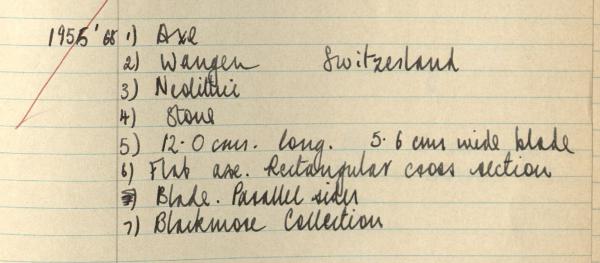 1955'68 1) Axe
2) Wangen Switzerland
3) Neolithic
4) Stone
5) 12.0 cms. long. 5.6 cms wide blade
6) Flat axe. Rectangular cross section
Blade. Parallel sides
7) Blackmore Collection